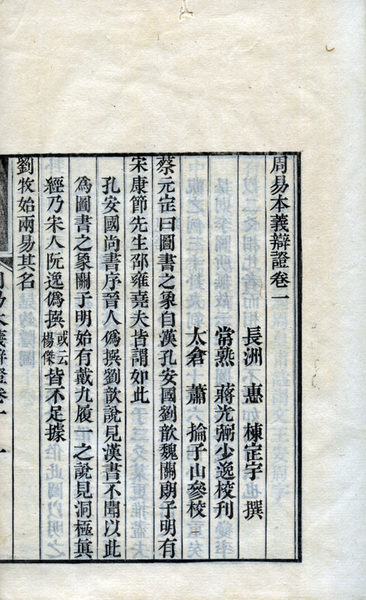 周易本義辯證卷一
長洲 惠 棟㝎宇 撰
常熟 蔣光弼少逸校刊
太倉 蕭 掄子山參校
蔡元㝎曰圖書之象自漢孔安國劉歆魏關朗子明有
宋康節先生邵雍堯夫皆謂如此
孔安國尚書序晉人偽撰劉歆說見漢書不聞以此
為圖書之象關子明始有戴九履一之說見洞極眞
經乃宋人阮逸偽撰或云楊傑皆不足據
劉牧始兩易其名